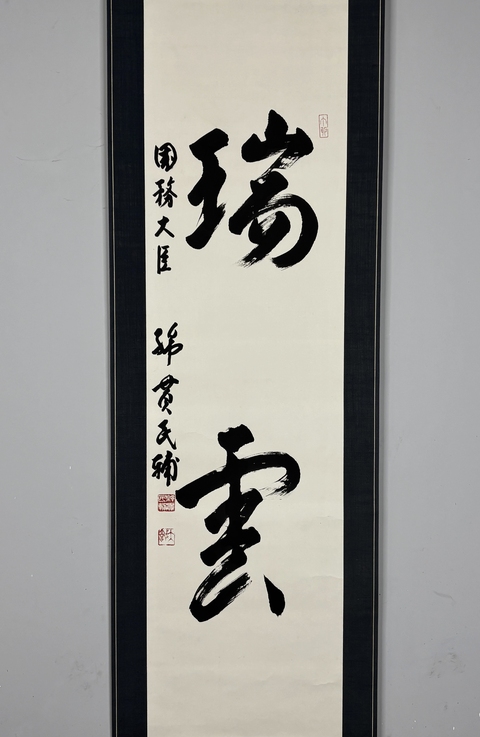 瑞雲
國務大臣 綿貫民輔